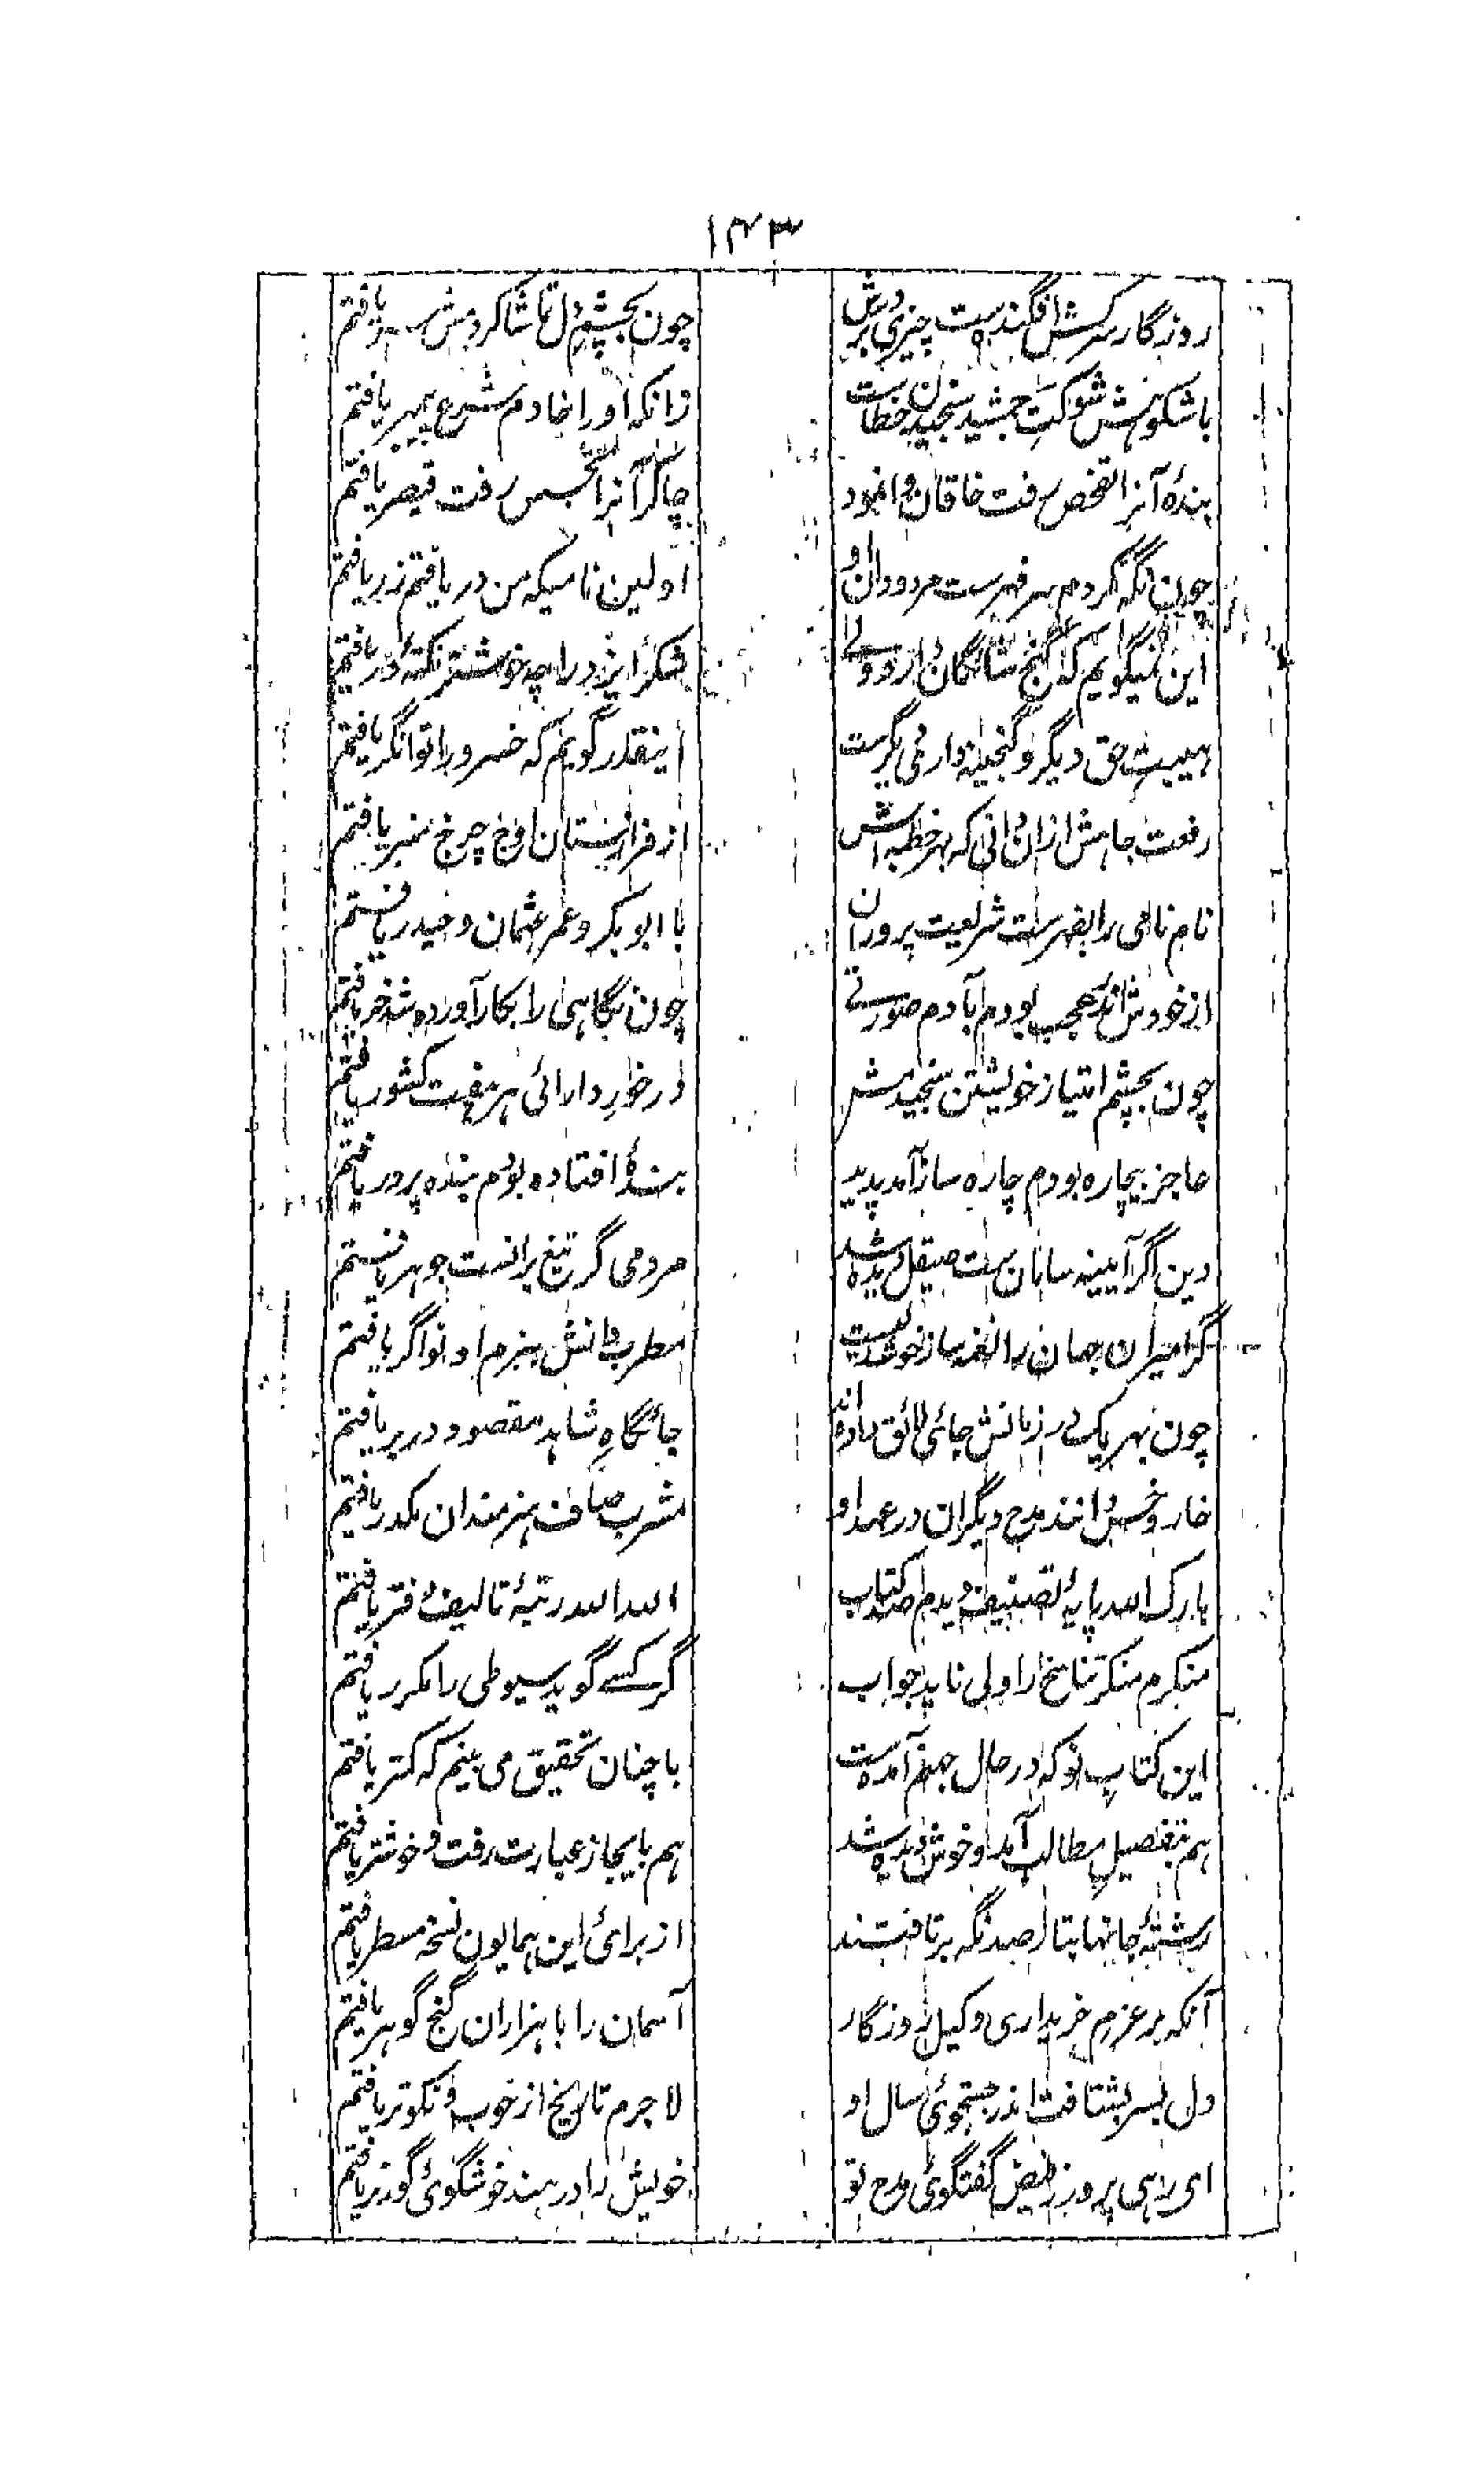 ۱۴۳
روزگار سرکش افگندست چیزی بر درش
چون بچشم دل تماشا کردمش سر یافتم
با شکوهش شوکتِ جمشید سنجیدن خطاست
زانکه او را خادم شرع پیمبر یافتم
بندهٔ آنرا تفحص رفت خاقان وانمود
چاکر آنرا تجسس رفت قیصر یافتم
چون نگه کردم بسر فهرست مردودان او
اولین نامیکه من دریافتم زر یافتم
این نمیگویم که گنج شائگان دارد ولے
شکر ایزد را چه خوشتر نکتهٔ در یافتم
هیبتِ حق دیگر و گنجینه داری دیگرست
اینقدر گویم که خسرو را توانگر یافتم
رفعت جاهش ازان دانی که بهر خطبه اش
از فرازستان اوج چرخ منبر یافتم
نام نامی را بفهرست شریعت پروران
با ابوبکر و عمر عثمان و حیدر یافتم
از خودش اندر عجب بودم بآدم صورتے
چون نگاهی را بکار آورده شد خر یافتم
چون بچشم امتیاز خویشتن سنجیدمش
در خورِ دارائی هر هفت کشور یافتم
عاجز بیچاره بودم چاره ساز آمد پدید
بندهٔ افتاده بودم بنده پرور یافتم
دین اگر آیینه سامان ست صیقل دیده شد
مردمی گر تیغ برانست جوهر یافتم
گر امیران جهان را نغمه ساز خوشدلیست
مطرب دانش ببزم او نواگر یافتم
چون بهر یک در زمانش جائی لائق داده اند
جائگاهِ شاهد مقصود در بر یافتم
خار و خس دانند مدح دیگران در عهد او
مشرب صاف هنرمندان مکدر یافتم
بارک الله پایهٔ تصنیف دیدم صد کتاب
الله الله رتبهٔ تالیف دفتر یافتم
منکرم منکر تناسخ را ولی ناید جواب
گر کسے گوید سیوطی را مکرر یافتم
این کتاب نو که در حال جهنم آمدست
با چنان تحقیق می بینم که کمتر یافتم
هم بتفصیل مطالب آمد و خوش دیده شد
هم بایجاز عبارت رفت و خوشتر یافتم
رشتهٔ جانها بتار صد نگه برتافتند
از برائی این همایون نسخه مسطر یافتم
آنکه بر عزم خریداری وکیل روزگار
آسمان را با هزاران گنج گوهر یافتم
دل بسر بشتافت اندر جستجوئی سال او
لاجرم تاریخ از خوب و نکوتر یافتم
ای رهی پرور ز فیض گفتگوئی مدح تو
خویش را در هند خوشگوئی گونر یافتم